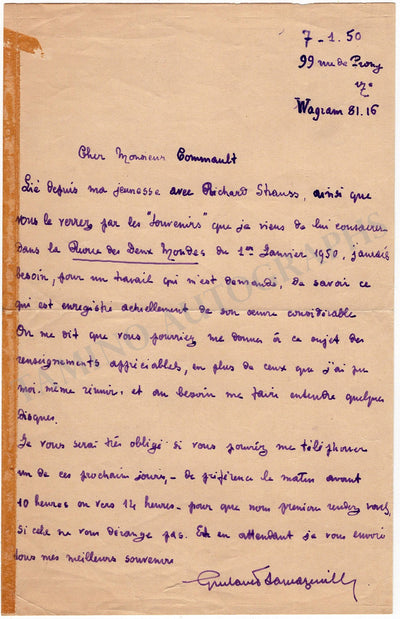 7-1.50
99 rue de Prony
Wagram 81.16
Cher Monsieur Commault
Lié depuis ma jeunesse avec Richard Strauss, ainsi que
vous le verrez par les "Souvenirs" que je viens de lui consacrer
dans la Revue des Deux Mondes du 1er Janvier 1950, j'aurais
besoin, pour un travail qui m'est demandé, de savoir ce
qui est enregistré actuellement de son œuvre considérable
On me dit que vous pourriez me donner à ce sujet des
renseignements appréciables, en plus de ceux que j'ai pu
moi-même réunir, et au besoin me faire entendre quelques
disques.
Je vous serai très obligé si vous pouvez me téléphoner
un de ces prochain jours - de préférence le matin avant
10 heures ou vers 14 heures - pour que nous prenions rendez vous,
si cela ne vous dérange pas. Et en attendant je vous envoie
tous mes meilleurs souvenirs
Gustave Samazeuilh
TAMINO AUTOGRAPHS